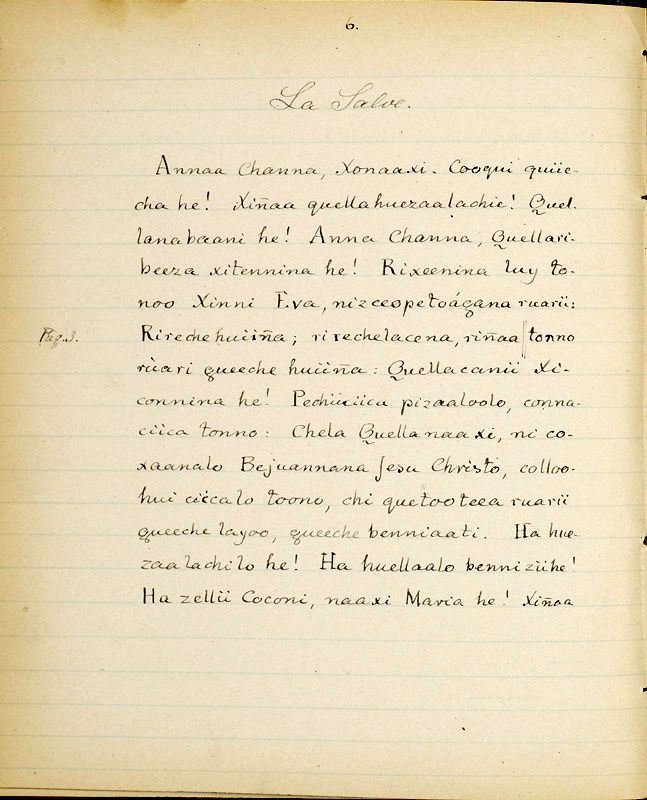 6.
La Salve.
Annaa Channa, Xonaaxi. Cooqui quiie-
cha he! Xiñaa quellahuezaalachie! Quel-
lanabaani he! Anna Channa, Quellari-
beeza xitennina he! Rixeenina luy to-
noo Xinni Eva, nizceopetoágana ruarii:
Pag. 3.
Rirechehuiiña; rirechelacena, riñaa tonno
rùari queeche huiiña: Quellacanii Xi-
connina he! Pechiiciica pizaaloolo, conna-
ciica tonno: Chela Quellanaaxi, ni co-
xaanalo Bejuannana Jesu Christo, colloo-
hui ciicalo toono, chi quetooteea ruarii
queeche layoo, queeche benniaati. Ha hue-
zaalachilo he! Ha huellaalo bennizii he!
Ha zellii Coconi, naaxi Maria he! Xiñaa